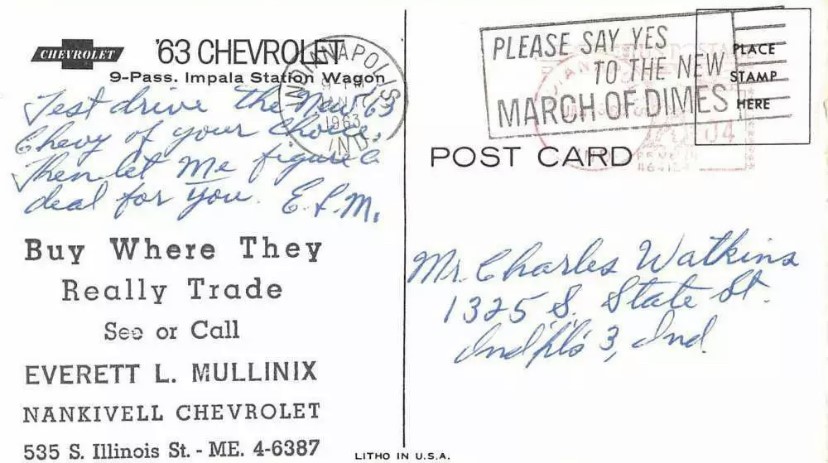 CHEVROLET
'63 CHEVROLET
9-Pass. Impala Station Wagon
INDIANAPOLIS
1963
IND.
Test drive the New '63
Chevy of your choice,
Then let Me figure a
deal for You. E.L.M.
Buy Where They
Really Trade
See or Call
EVERETT L. MULLINIX
NANKIVELL CHEVROLET
535 S. Illinois St. - ME. 4-6387
LITHO IN U.S.A.
PLEASE SAY YES
TO THE NEW
MARCH OF DIMES
PLACE
STAMP
HERE
04
POST CARD
Mr. Charles Watkins
1325 S. State St.
Ind'pl's 3, Ind.